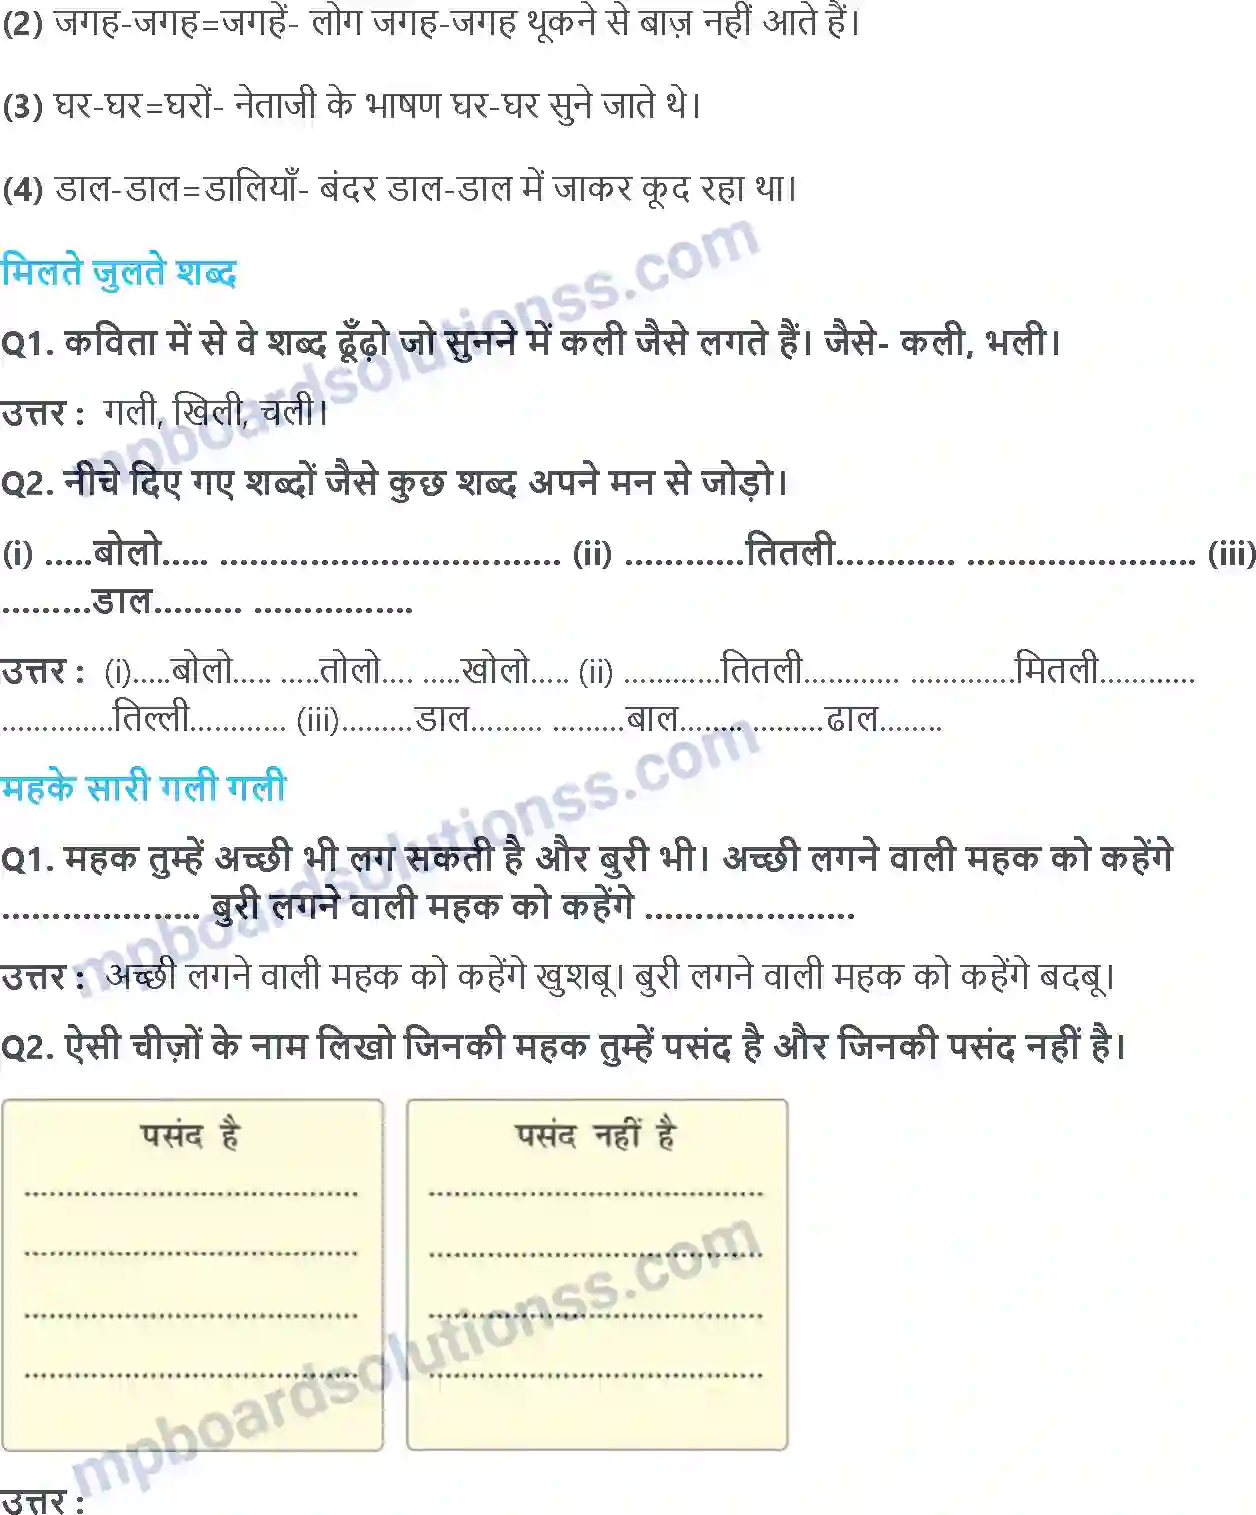 (2) जगह-जगह=जगहें- लोग जगह-जगह थूकने से बाज़ नहीं आते हैं।
(3) घर-घर=घरों- नेताजी के भाषण घर-घर सुने जाते थे।
(4) डाल-डाल=डालियाँ- बंदर डाल-डाल में जाकर कूद रहा था।
मिलते जुलते शब्द
Q1. कविता में से वे शब्द ढूँढ़ो जो सुनने में कली जैसे लगते हैं। जैसे- कली, भली।
उत्तर : गली, खिली, चली।
Q2. नीचे दिए गए शब्दों जैसे कुछ शब्द अपने मन से जोड़ो।
(i) .....बोलो..... .................................. (ii) ............तितली............ ....................... (iii)
.........डाल......... ................
उत्तर : (i).....बोलो..... .....तोलो.... .....खोलो..... (ii) ............तितली............ .............मितली............
..............तिल्ली............ (iii).........डाल......... .........बाल........ .........ढाल........
महके सारी गली गली
Q1. महक तुम्हें अच्छी भी लग सकती है और बुरी भी। अच्छी लगने वाली महक को कहेंगे
.................... बुरी लगने वाली महक को कहेंगे .....................
उत्तर : अच्छी लगने वाली महक को कहेंगे खुशबू। बुरी लगने वाली महक को कहेंगे बदबू।
Q2. ऐसी चीज़ों के नाम लिखो जिनकी महक तुम्हें पसंद है और जिनकी पसंद नहीं है।
पसंद है
पसंद नहीं है
उत्तर :
mpboardsolutionss.com
mpboardsolutionss.com
mpboardsolutionss.com